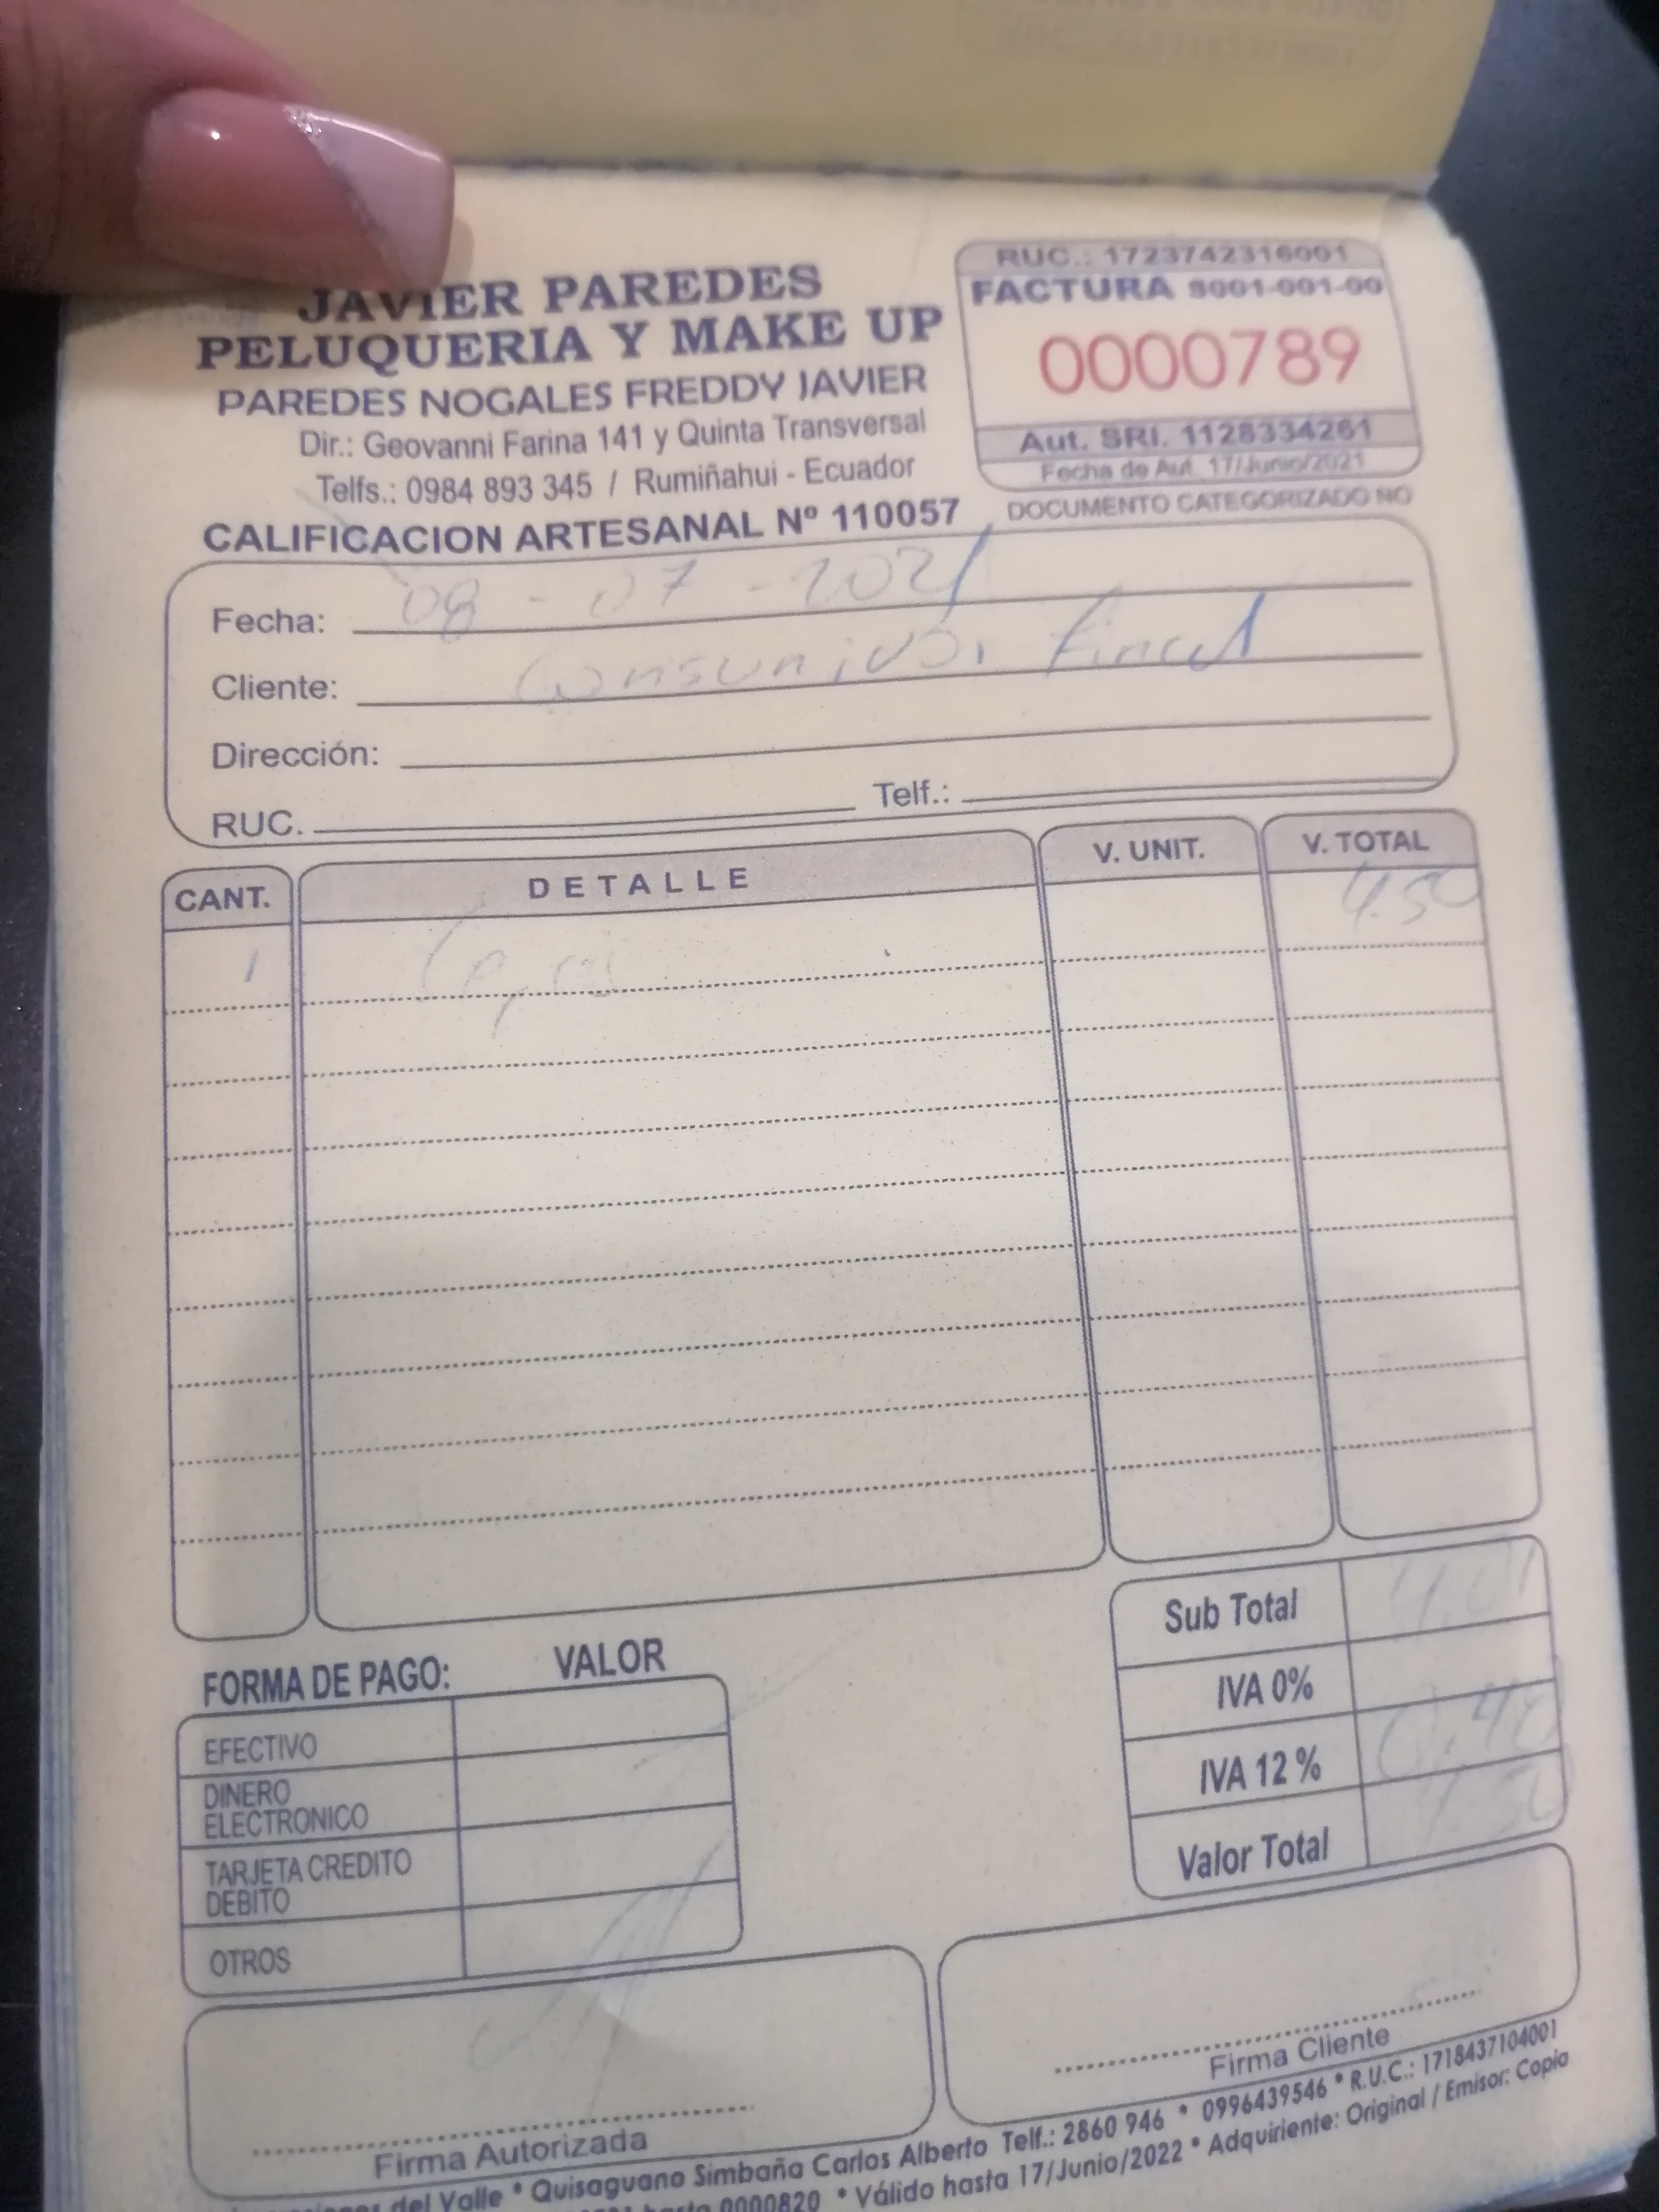 JAVIER PAREDES
PELUQUERIA Y MAKE UP
PAREDES NOGALES FREDDY JAVIER
Dir.: Geovanni Farina 141 y Quinta Transversal
Telfs.: 0984 893 345 / Rumiñahui - Ecuador
CALIFICACION ARTESANAL Nº 110057
RUC.: 1723742316001
FACTURA S001-001-00
0000789
Aut. SRI. 1128334261
Fecha de Aut. 17/Junio/2021
DOCUMENTO CATEGORIZADO NO
Fecha: 08 - 07 - 2021
Cliente: Consumidor Final
Dirección:
RUC. Telf.:
CANT. DETALLE V. UNIT. V. TOTAL
1 4.50
FORMA DE PAGO: VALOR
EFECTIVO
DINERO
ELECTRONICO
TARJETA CREDITO
DEBITO
OTROS
Sub Total 4.01
IVA 0%
IVA 12 % 0,48
Valor Total 4.50
Firma Autorizada
Firma Cliente
del Valle * Quisaguano Simbaña Carlos Alberto Telf.: 2860 946 * 0996439546 * R.U.C.: 1718437104001
hasta 0000820 * Válido hasta 17/Junio/2022 * Adquiriente: Original / Emisor: Copia